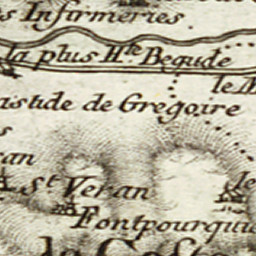 s Infirmeries.
la plus Hte Begude
le
astide de Gregoire
s
an
St Veran
le
Fontpourqui
la Coste